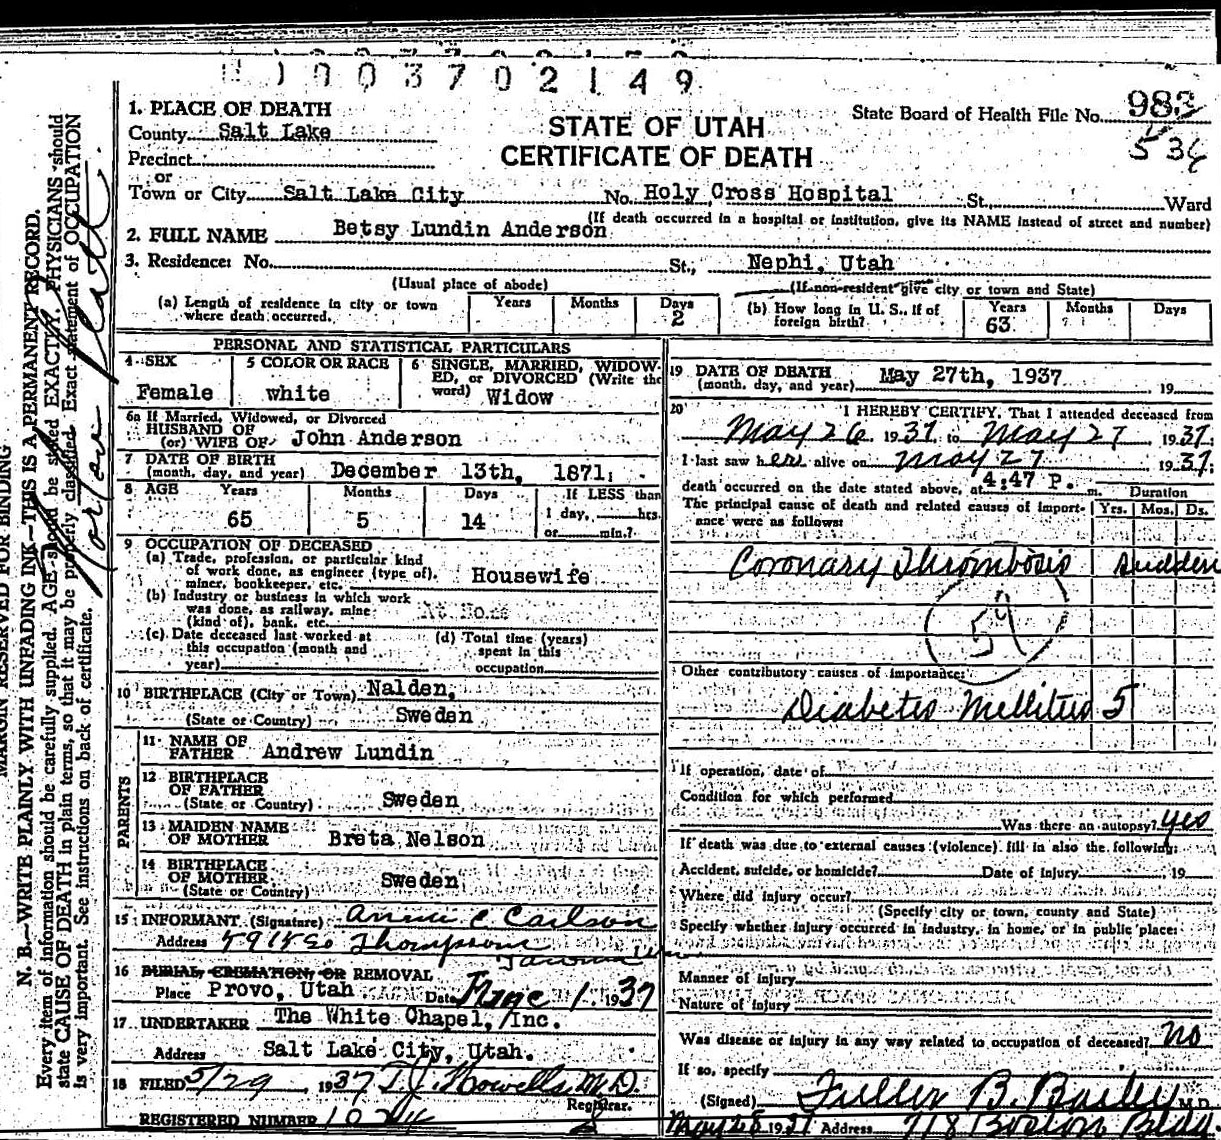 1003702149
State Board of Health File No. 983
534
STATE OF UTAH
CERTIFICATE OF DEATH
1. PLACE OF DEATH
County Salt Lake
Precinct
or
Town or City Salt Lake City No. Holy Cross Hospital St. Ward
(If death occurred in a hospital or institution, give its NAME instead of street and number)
2. FULL NAME Betsy Lundin Anderson
3. Residence: No. St., Nephi, Utah
(Usual place of abode) (If non-resident give city or town and State)
(a) Length of residence in city or town where death occurred. Years Months Days 2
(b) How long in U. S., if of foreign birth? Years 63 Months Days
PERSONAL AND STATISTICAL PARTICULARS
4 SEX Female
5 COLOR OR RACE white
6 SINGLE, MARRIED, WIDOWED, or DIVORCED (Write the word) Widow
6a If Married, Widowed, or Divorced
HUSBAND OF
(or) WIFE OF John Anderson
7 DATE OF BIRTH
(month, day, and year) December 13th, 1871
8 AGE Years 65 Months 5 Days 14 If LESS than 1 day, hrs. or min.?
9 OCCUPATION OF DECEASED
(a) Trade, profession, or particular kind
of work done, as engineer (type of),
miner, bookkeeper, etc. Housewife
(b) Industry or business in which work
was done, as railway, mine
(kind of), bank, etc. At Home
(c) Date deceased last worked at
this occupation (month and
year)
(d) Total time (years)
spent in this
occupation
10 BIRTHPLACE (City or Town) Nalden,
(State or Country) Sweden
PARENTS
11 NAME OF
FATHER Andrew Lundin
12 BIRTHPLACE
OF FATHER
(State or Country) Sweden
13 MAIDEN NAME
OF MOTHER Breta Nelson
14 BIRTHPLACE
OF MOTHER
(State or Country) Sweden
15 INFORMANT (Signature) Annie C Carlson
Address Thompson
16 BURIAL, CREMATION, OR REMOVAL
Place Provo, Utah Date June 1 1937
17 UNDERTAKER The White Chapel, Inc.
Address Salt Lake City, Utah.
18 FILED 5/29, 1937 T. J. Howells, M.D.
Registrar.
REGISTERED NUMBER
19 DATE OF DEATH
(month, day, and year) May 27th, 1937 19
20 I HEREBY CERTIFY, That I attended deceased from
May 26 1937 to May 27 1937.
I last saw her alive on May 27 1937,
death occurred on the date stated above, at 4:47 P. m.
Duration
The principal cause of death and related causes of importance were as follows: Yrs. Mos. Ds.
Coronary Thrombosis sudden
59
Other contributory causes of importance:
Diabetes Mellitus 5
If operation, date of
Condition for which performed
Was there an autopsy? yes
If death was due to external causes (violence) fill in also the following:
Accident, suicide, or homicide? Date of injury 19
Where did injury occur?
(Specify city or town, county and State)
Specify whether injury occurred in industry, in home, or in public place:
Manner of injury
Nature of injury
Was disease or injury in any way related to occupation of deceased? No
If so, specify
(Signed) Fuller B. Bailey M.D.
May 28 1937 Address 718 Boston Bldg.
MARGIN RESERVED FOR BINDING
N. B.—WRITE PLAINLY WITH UNFADING INK—THIS IS A PERMANENT RECORD.
Every item of information should be carefully supplied. AGE should be stated EXACTLY. PHYSICIANS should
state CAUSE OF DEATH in plain terms, so that it may be properly classified. Exact statement of OCCUPATION
is very important. See instructions on back of certificate.